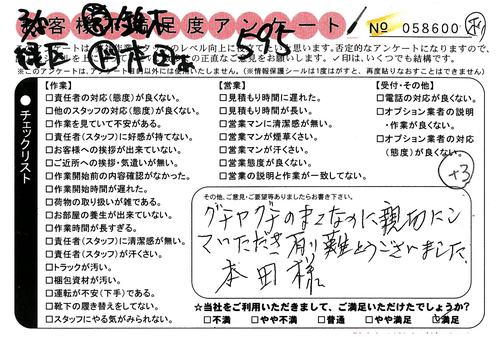 お客様満足度アンケート
№ 058600
595
※このアンケートは、アンケート目的以外には使用いたしません。(※情報保護シールは1度がすと、再度貼りなおすことが出来ません。)
チェックリスト
【作業】
□責任者の対応(態度)が良くない。
□他のスタッフの対応(態度)が良くない。
□作業を見ていて不安がある。
□責任者(スタッフ)に好感が持てない。
□お客様への挨拶が出来ていない。
□ご近所への挨拶・気遣いが無い。
□作業開始前の内容確認がなかった。
□作業開始時間が遅れた。
□荷物の取り扱いが雑である。
□お部屋の養生が出来ていない。
□作業時間が長すぎる。
□責任者(スタッフ)に清潔感が無い。
□責任者(スタッフ)が汗くさい。
□トラックが汚い。
□梱包資材が汚い。
□運転が不安(下手)である。
□靴下の履き替えをしてない。
□スタッフにやる気がみられない。
【営業】
□見積もり時間に遅れた。
□見積もり時間が長い。
□営業マンに清潔感が無い。
□営業マンが煙草くさい。
□営業マンが汗くさい。
□営業態度が良くない。
□営業の説明と作業が一致してない。
【受付・その他】
□電話の対応が良くない。
□オプション業者の説明
・作業が良くない。
□オプション業者の対応
(態度)が良くない。
+3
その他、ご意見・ご要望等ありましたらお書き下さい。
グチャグチャのまゝなのに親切にし
ていただき有り難とうございました。
本田様
☆当社をご利用いただきまして、ご満足いただけたでしょうか?
□不満 □やや不満 □普通 □やや満足 ☑満足